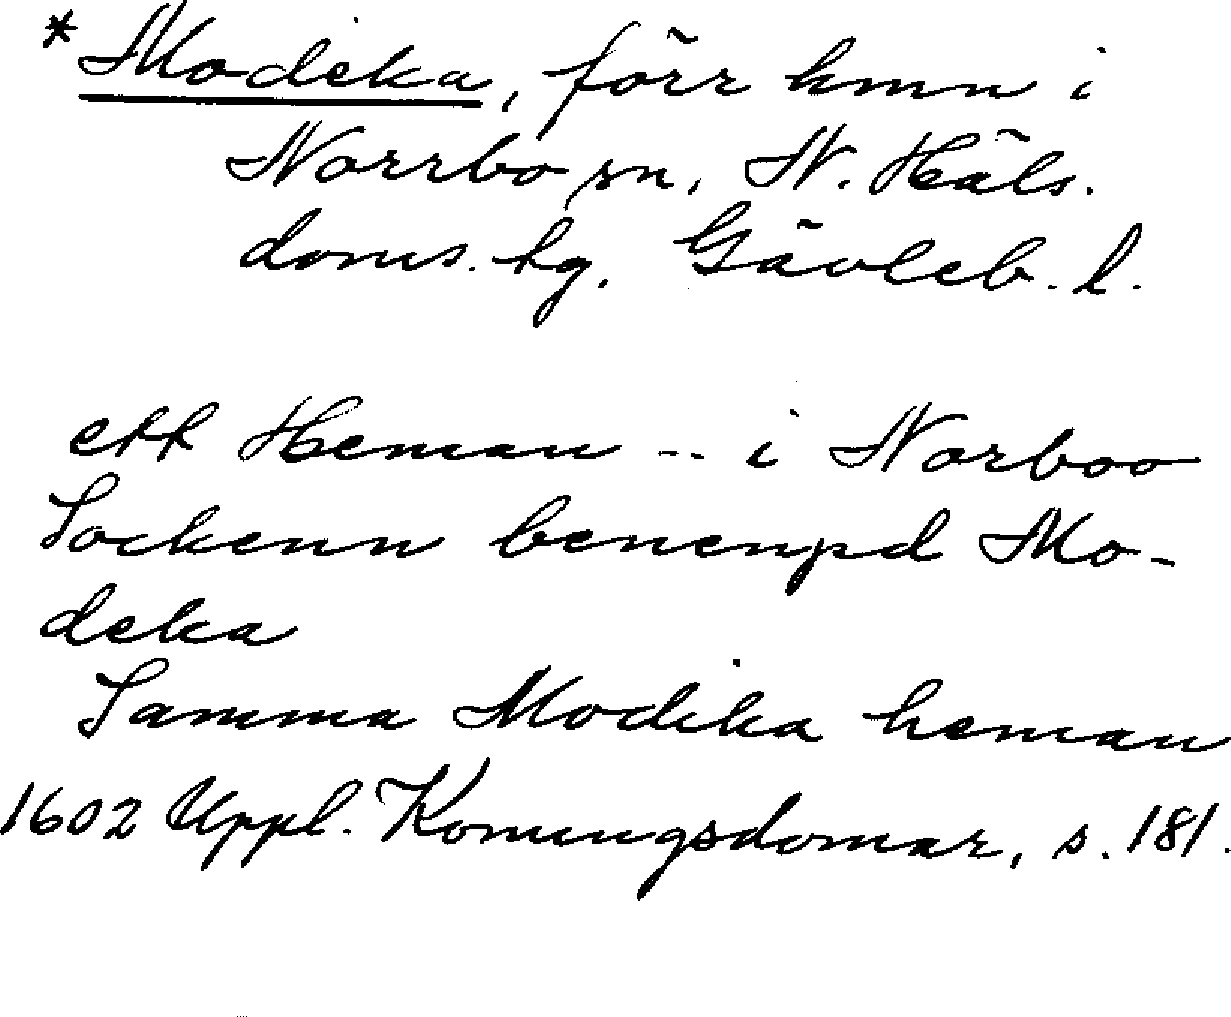 *Modeka, förr hmn i
Norrbo sn, N. Häls.
doms. hg, Gävleb. l.
ett Heman -- i Norboo
Sockenn benenpd Mo-
deka
Samma Modika heman
1602 Uppl. Konungsdomar, s. 181.